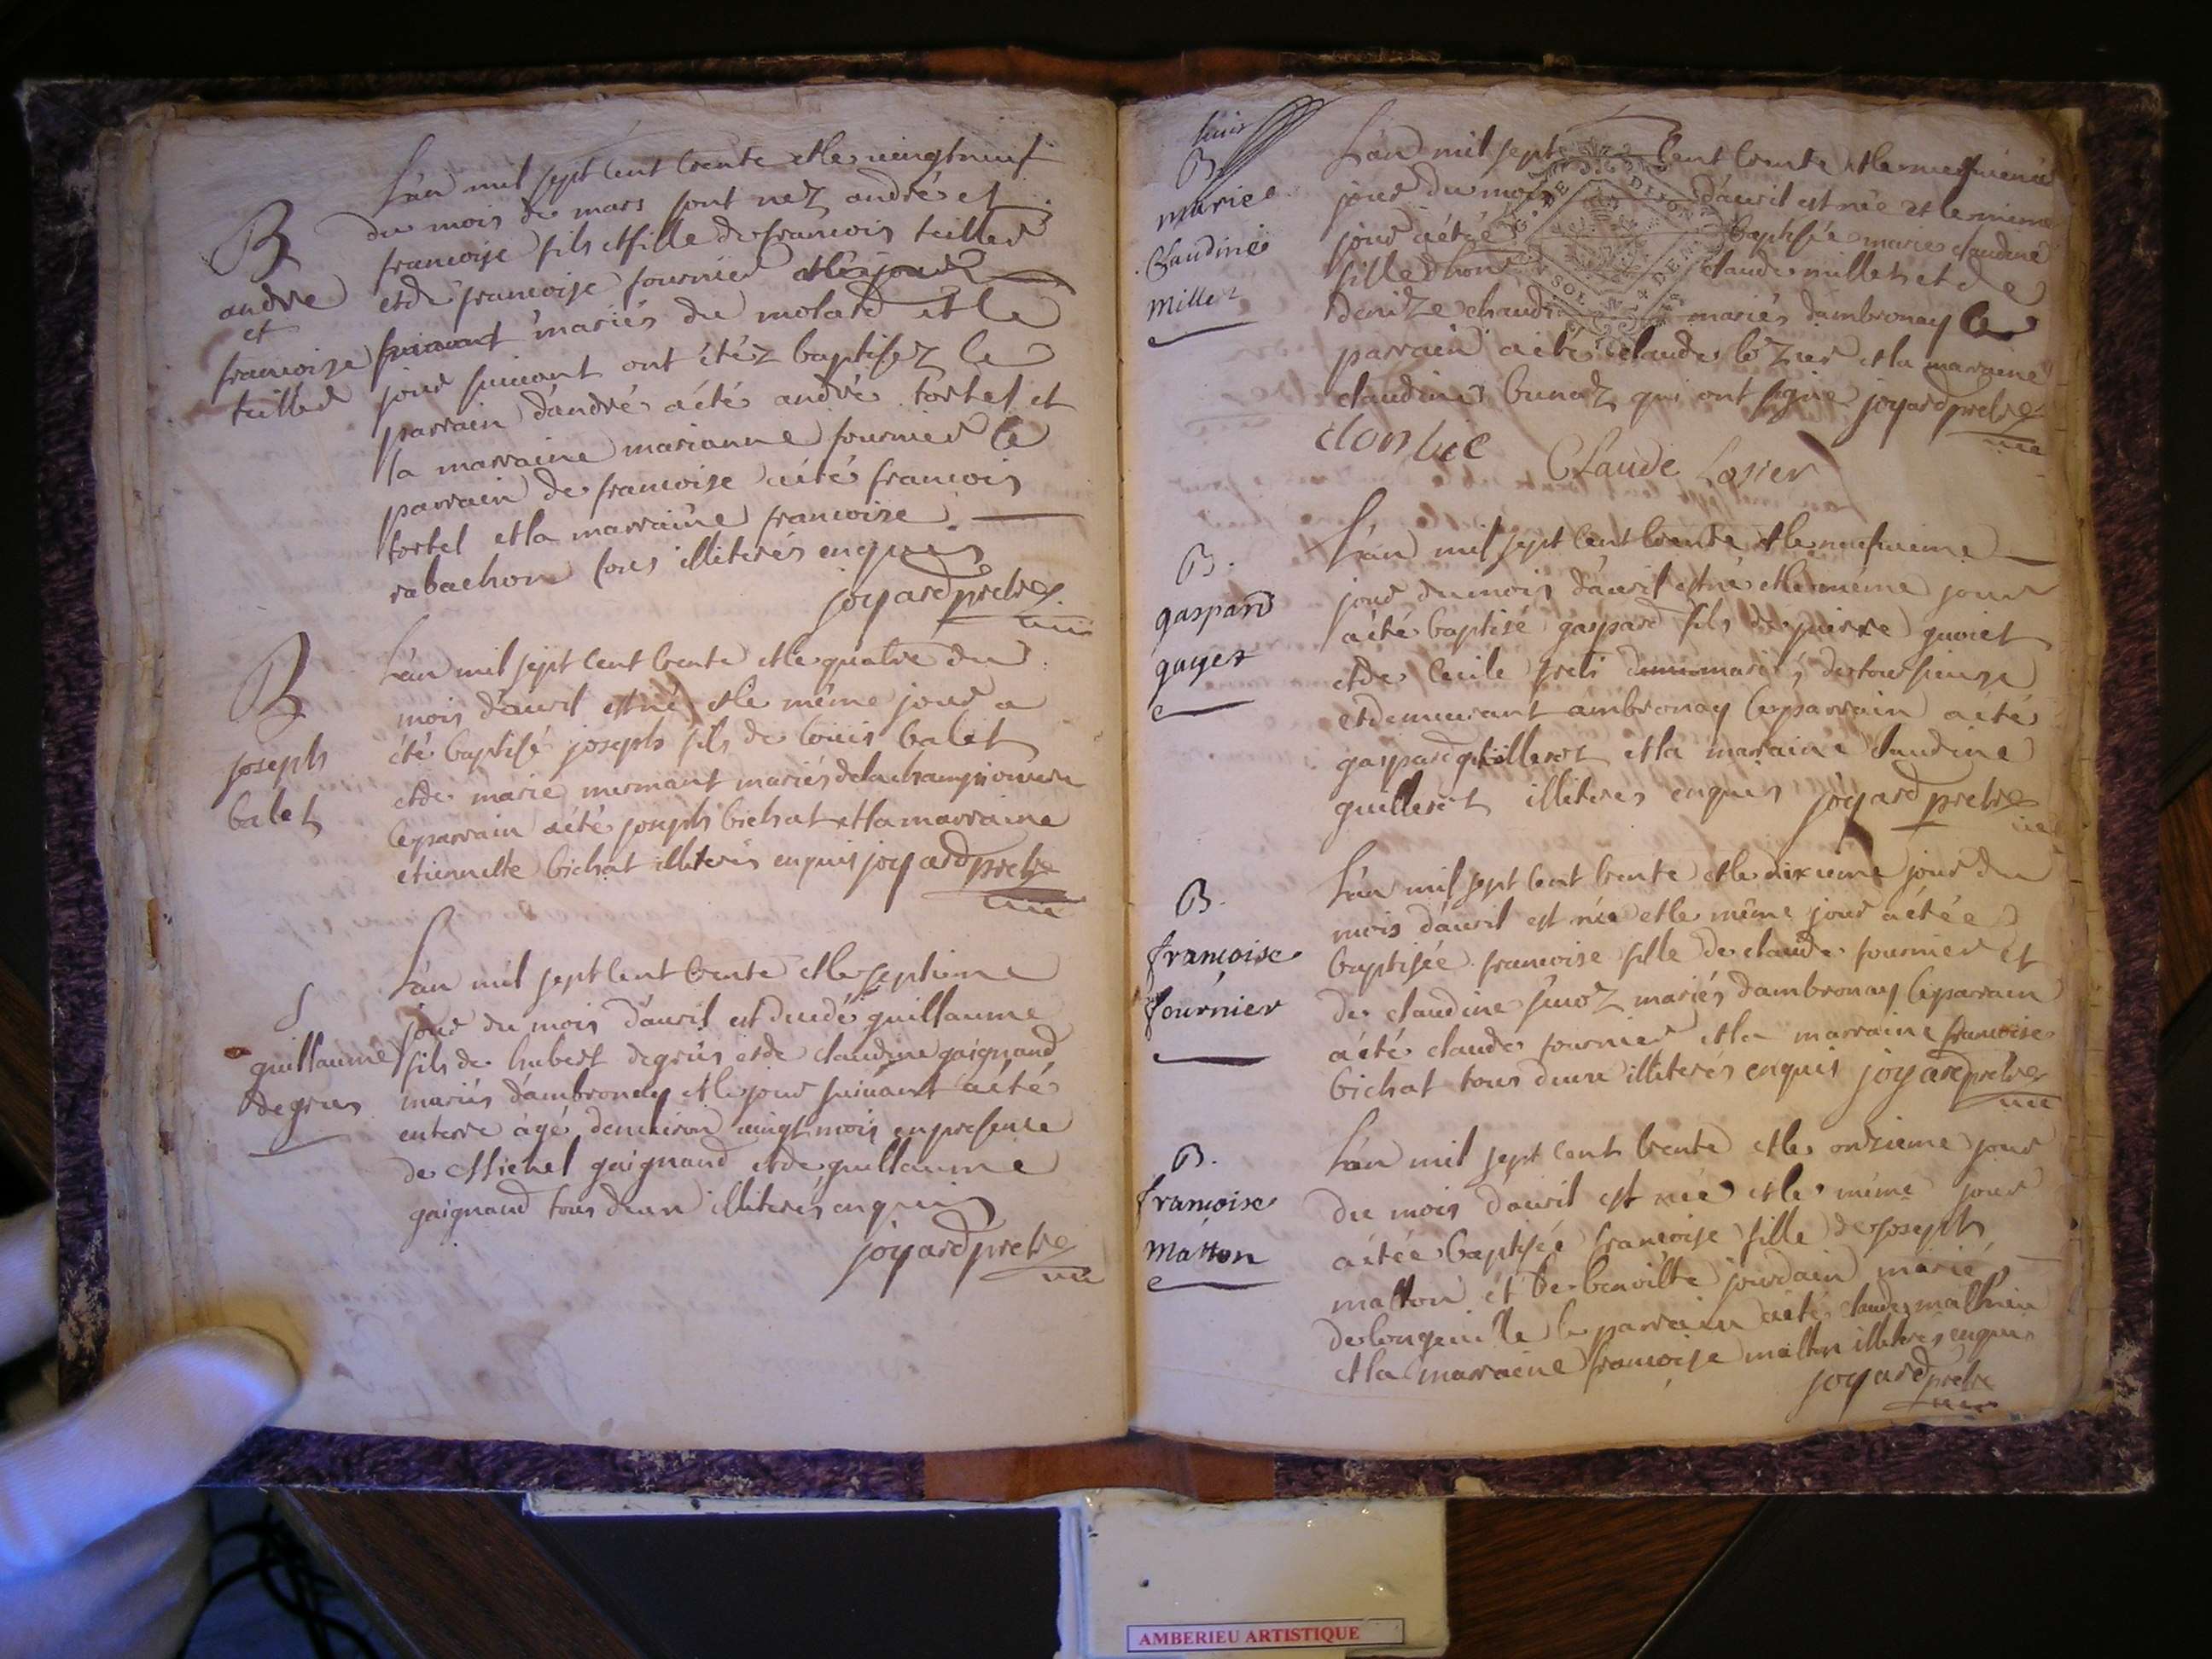 L'an mil sept cent trente et le vingt neuf
du mois de mars sont nez andré et
francoise fils et fille de francois teillier
et de francoise fournier et le jour
suivant mariés du molard et le
jour suivant ont étéz baptisez le
parrain d'andré a été andré tortel et
la marraine marianne fournier le
parrain de francoise a été francois
tortel et la marraine francoise
rabachon tous illiterés enquis
joyard pretre
B
andre
et
francoise
teillier
L'an mil sept cent trente et le quatre du
mois d'avril est né et le même jour a
été baptisé joseph fils de louis balet
et de marie mermant mariés de la champ
le parrain a été joseph bichat et la marraine
etiennette bichat illiterés enquis joyard pretre
B
joseph
balet
L'an mil sept cent trente et le septieme
jour du mois d'avril est decedé guillaume
fils de hubert degrus et de claudine gaignand
mariés d'ambronay et le jour suivant a été
enterre agé d'environ vingt mois en presence
de Michel gaignand et de guillaume
gaignand tous deux illiterés enquis
joyard pretre
S
guillaume
degrus
huit
B
marie
Claudine
Millet
L'an mil sept cent trente et le
jour du mois d'avril est née et le meme
jour a étée baptisée marie claudine
fille d'hon claude millet et de
denize mariés d'ambronay le
parrain a été claude lozier et la maraine
claudine bunod qui ont signé joyard pretre
Claude Losier
B.
gaspard
guyet
L'an mil sept cent trente et le neufvieme
jour du mois d'avril est né et le même jour
a été baptisé gaspard fils de pierre guoiet
et de cecile mariés de
et demeurant ambronay le parrain a été
gaspard guilleret et la marraine claudine
guilleret illiteres enquis joyard pretre
B.
francoise
fournier
L'an mil sept cent trente et le dixieme jour du
mois d'avril est née et le même jour a étée
baptisée francoise fille de claude fournier et
de claudine mariés d'ambronay le parrain
a été claude fournier et la marraine francoise
bichat tous deux illiterés enquis joyard pretre
B.
francoise
Matton
L'an mil sept cent trente et le onzieme jour
du mois d'avril est née et le même jour
a étée baptisée francoise fille de joseph
matton et de benoitte jourdain mariés
de longeville le parrain a été claude mathieu
et la marraine francoise matton illiterés enquis
joyard pretre
AMBERIEU ARTISTIQUE